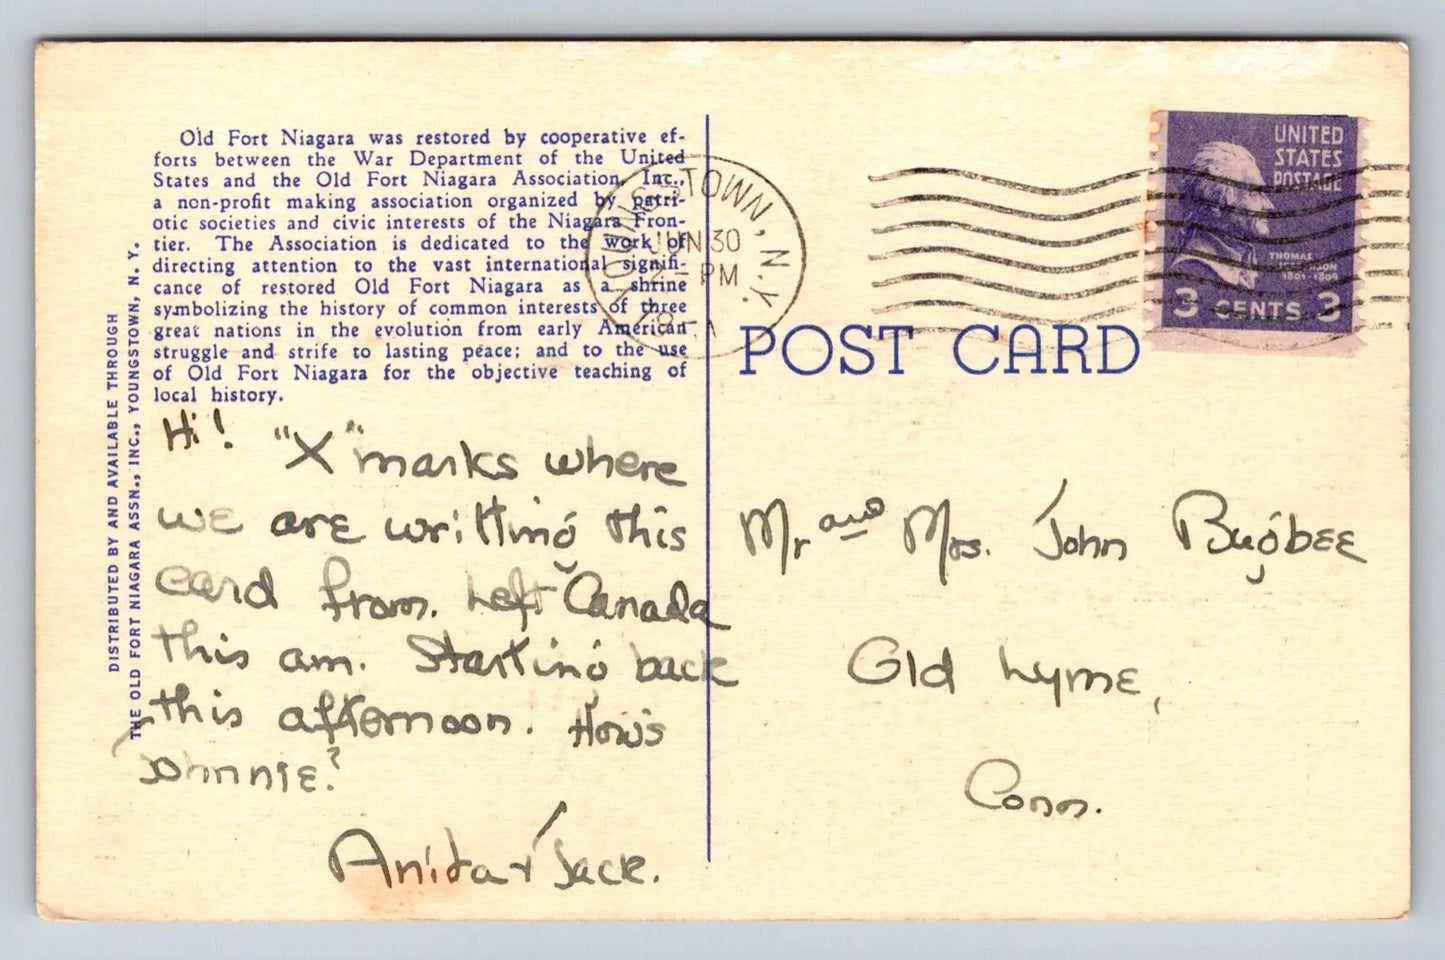 Old Fort Niagara was restored by cooperative ef-
forts between the War Department of the United
States and the Old Fort Niagara Association, Inc.,
a non-profit making association organized by patri-
otic societies and civic interests of the Niagara Fron-
tier. The Association is dedicated to the work of
directing attention to the vast international signifi-
cance of restored Old Fort Niagara as a shrine
symbolizing the history of common interests of three
great nations in the evolution from early American
struggle and strife to lasting peace; and to the use
of Old Fort Niagara for the objective teaching of
local history.
DISTRIBUTED BY AND AVAILABLE THROUGH
THE OLD FORT NIAGARA ASSN., INC., YOUNGSTOWN, N. Y.
Hi! "X" marks where
we are writting this
card from. Left Canada
this am. Starting back
this afternoon. How's
Johnnie?
Anita + Jack.
YOUNGSTOWN, N.Y.
JUN 30
PM
POST CARD
UNITED
STATES
POSTAGE
THOMAS
JEFFERSON
1801-1809
3 CENTS 3
Mr and Mrs. John Bugbee
Old Lyme,
Conn.